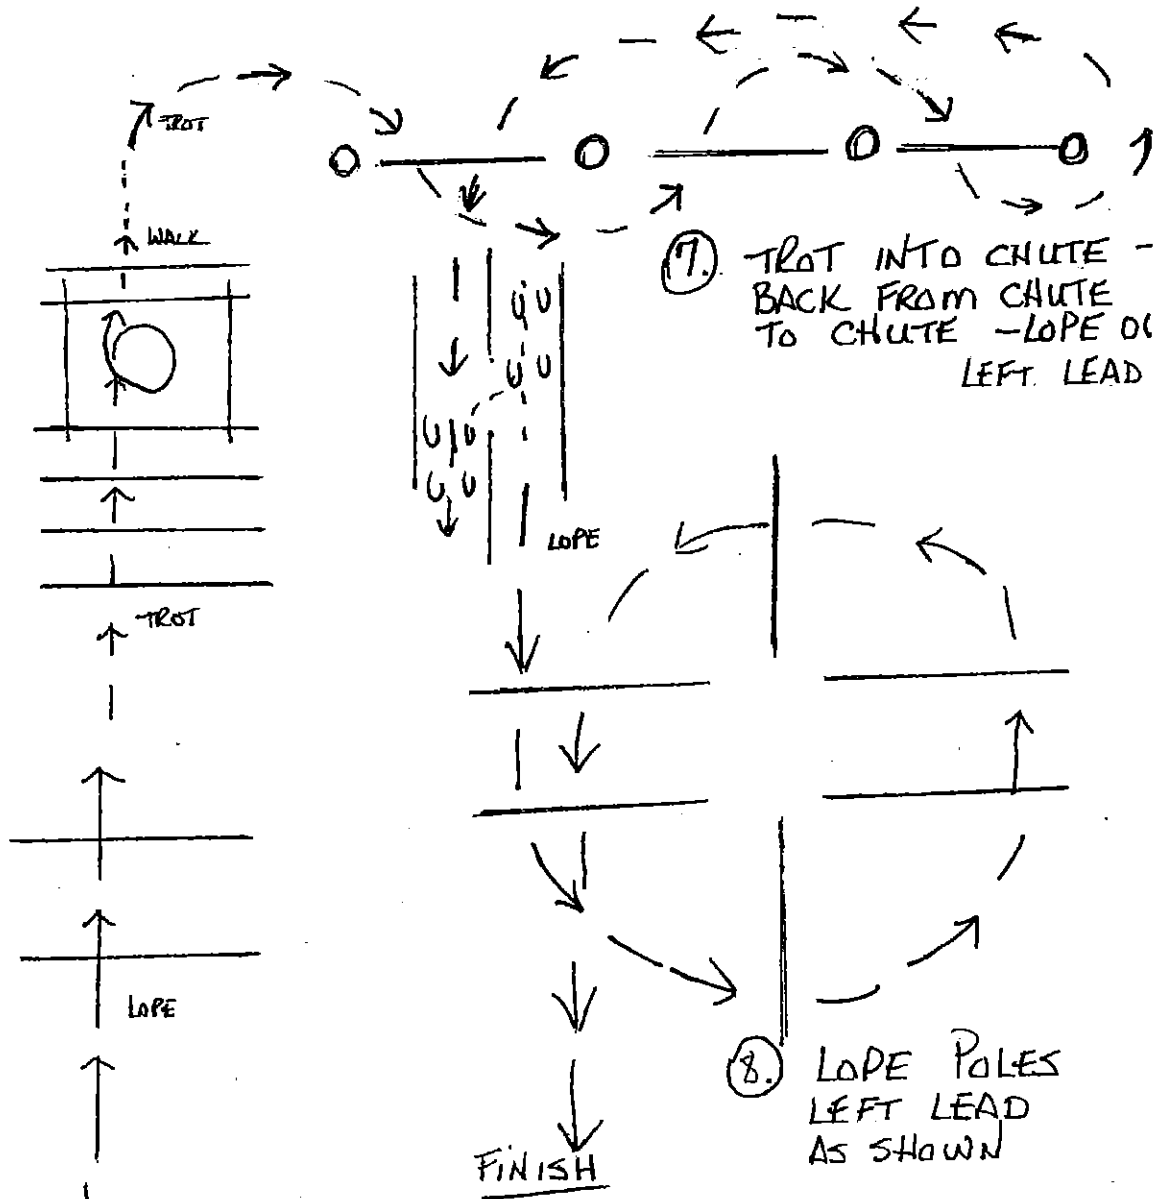 TROT
WALK
7. TROT INTO CHUTE -
BACK FROM CHUTE
TO CHUTE - LOPE
LEFT LEAD
LOPE
TROT
LOPE
8. LOPE POLES
LEFT LEAD
AS SHOWN
FINISH